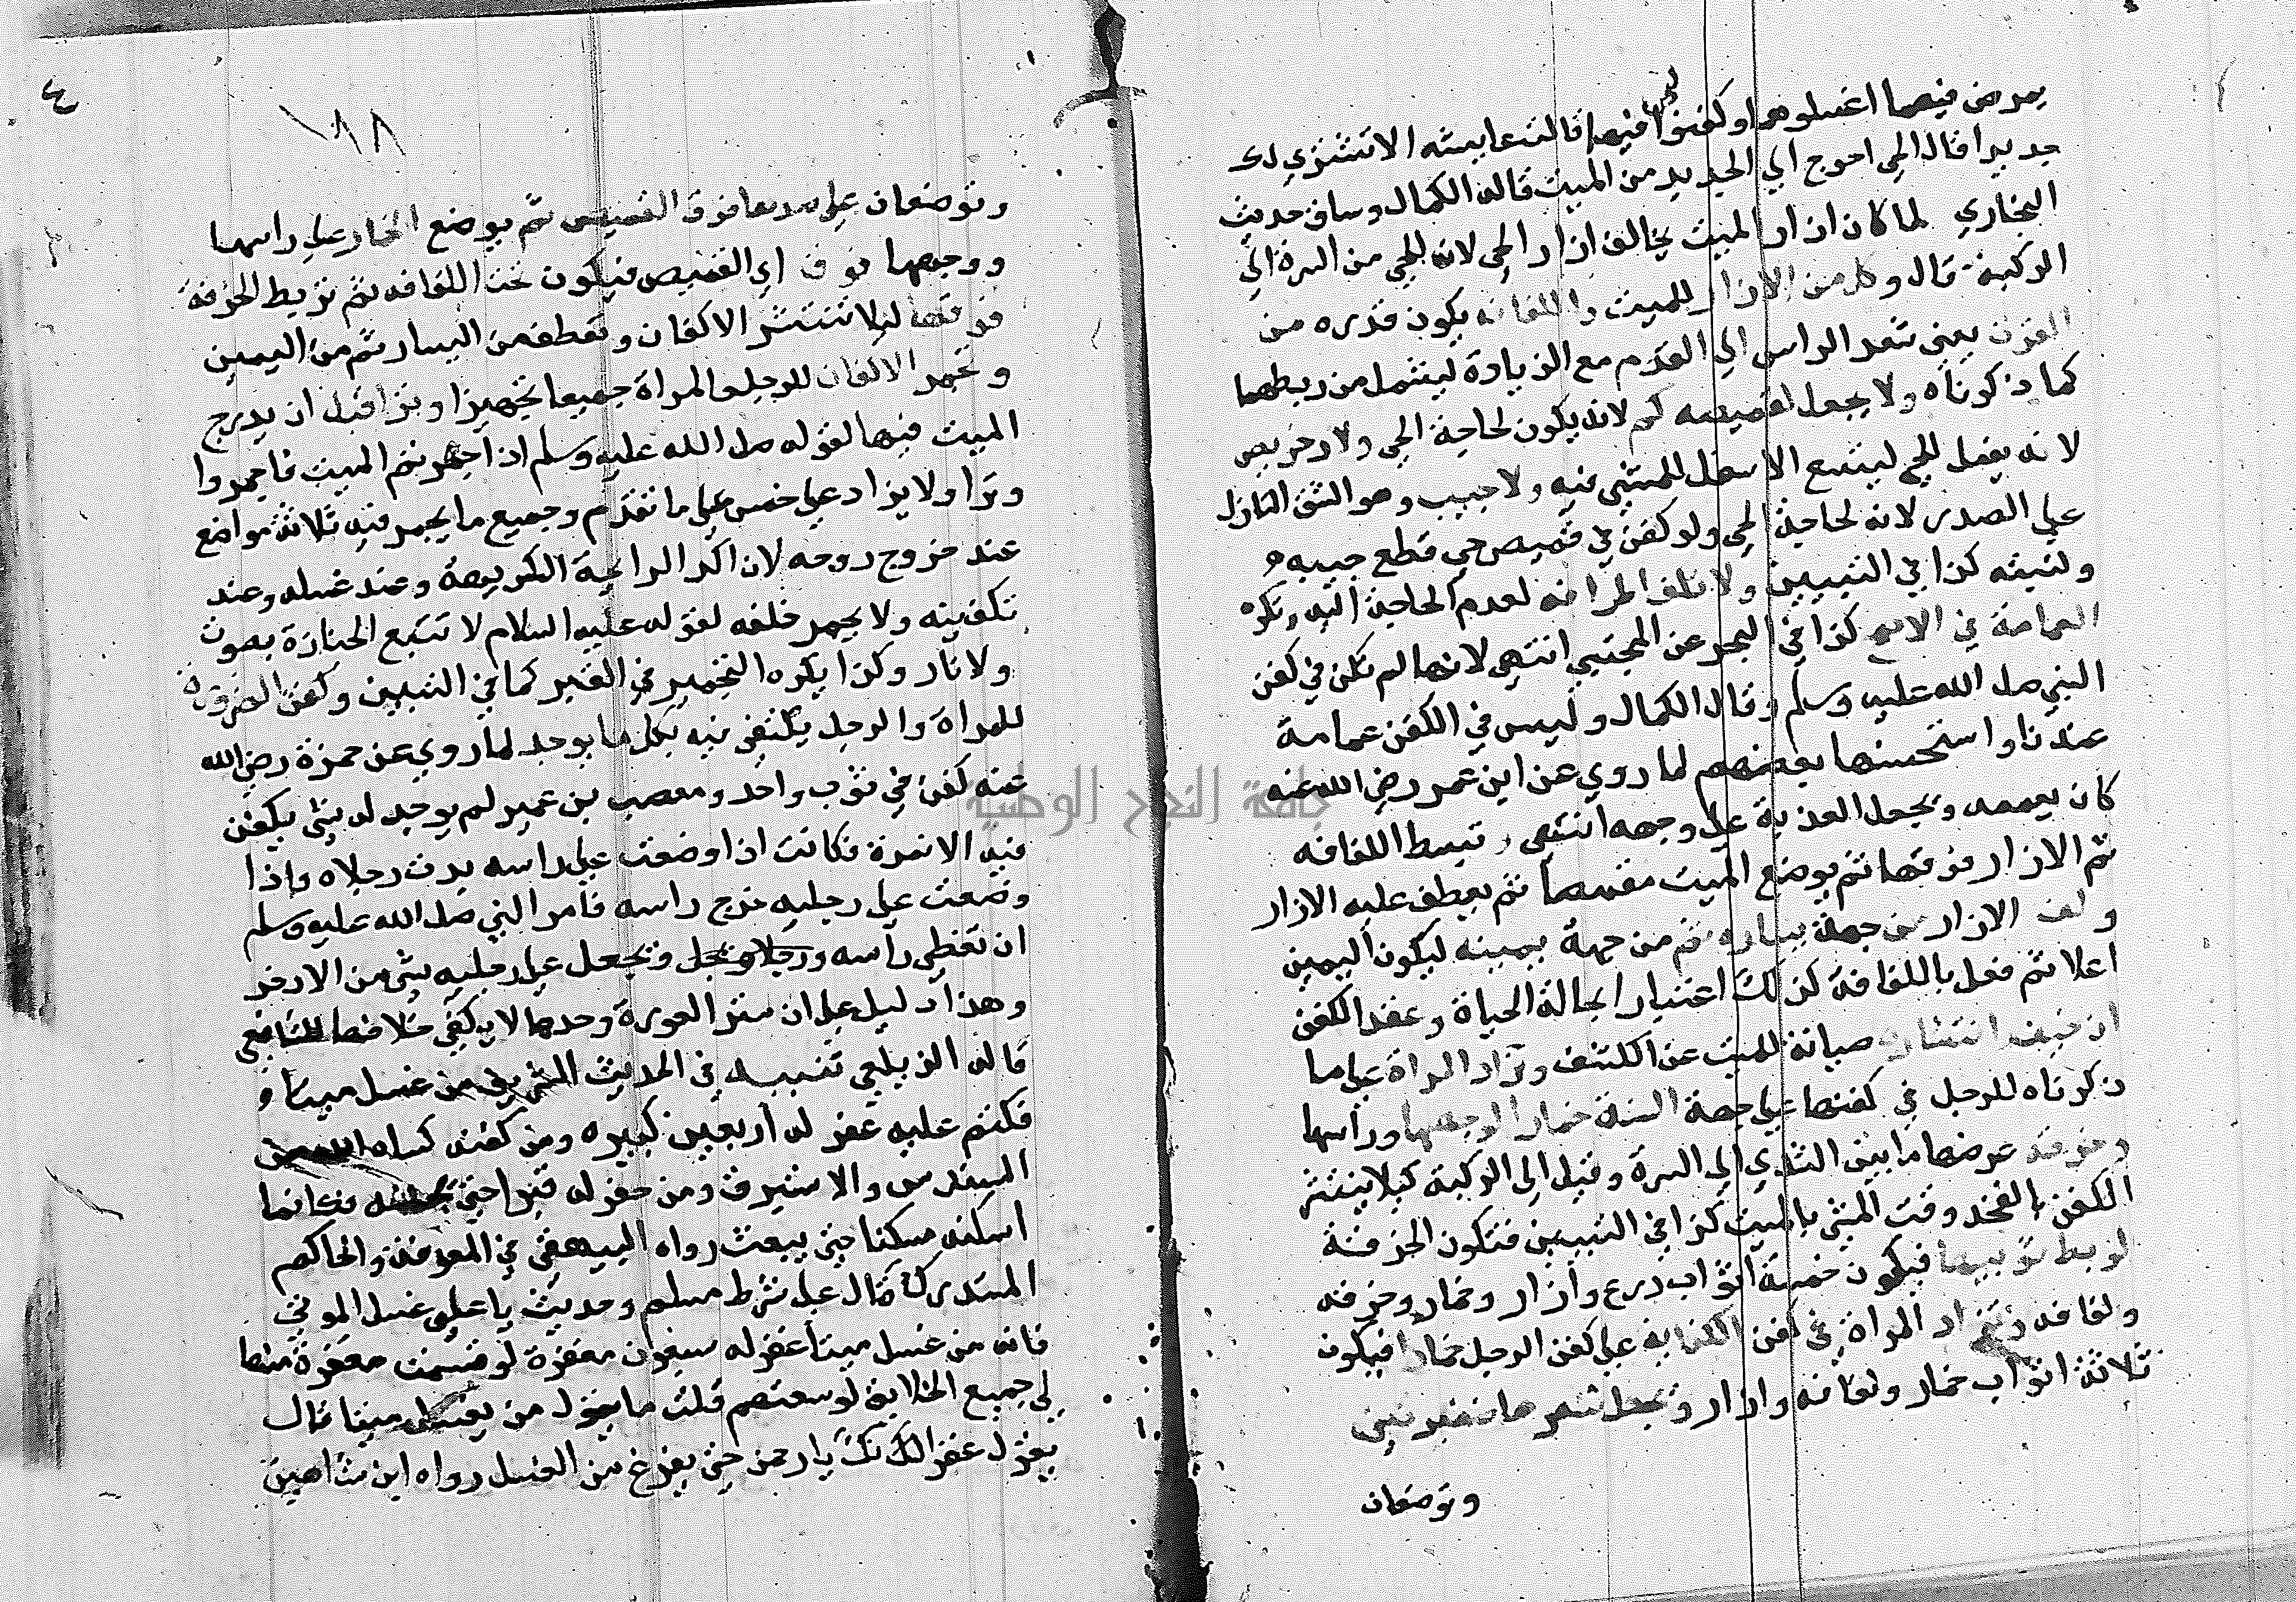 يمرض فيهما اغسلوهما وكفنوني فيهما قالت عايشه الا تشتري لك
جديدا قال الحي احوج الي الجديد من الميت قاله الكمال وساق حديث
البخاري لما كان ازار الميت يخالف ازار الحي لانه للحي من السرة الي
الركبة قال وكل من الازار للميت واللفافه يكون قدره من
القرن يعني شعر الراس الي القدم مع الزيادة ليشمل من ربطهما
كما ذكرناه ولا يجعل لقميصه كم لانه يكون لحاجة الحي ولا دخريص
لانه يفعل للحي ليتسع الاسفل للمشي فيه ولا جيب وهو الشق النازل
علي الصدر لانه لحاجة الحي ولو كفن في قميص حي قطع جيبه و
ولبنته كذا في التبيين ولا تلف اطرافه لعدم الحاجة اليه وتكره
العمامة في الاصح كذا في البحر عن المجتبي انتهى لانها لم تكن في كفن
النبي صلى الله عليه وسلم وقال الكمال وليس في الكفن عمامة
عندنا واستحسنها بعضهم لما روي عن ابن عمر رضي الله عنه
كان يعممه ويجعل العذبة علي وجهه انتهى وتبسط اللفافه
ثم الازار فوقها ثم يوضع الميت مقمصا ثم يعطف عليه الازار
ولف الازار من جهة يساره ثم من جهة يمينه ليكون اليمين
اعلا ثم فعل باللفافة كذلك اعتبارا بحالة الحياة وعقد الكفن
ان خيف انتشاره صيانة للميت عن الكشف وتزاد المراة علي ما
ذكرناه للرجل في كفنها علي جهة السنة خمارا لوجهها وراسها
وخرقة عرضها ما بين الثدي الي السرة وقيل الي الركبة كيلا ينتشر
الكفن بالفخذ وقت المشي بالميت كذا في التبيين فتكون الخرقة
لربط ثدييها فيكون خمسة اثواب درع وازار وخمار وخرقه
ولفافه وتزاد المراة في كفن الكفاية علي كفن الرجل خمارا فيكون
ثلاثة اثواب خمار ولفافه وازار ويجعل شعرها ضفيرتين
وتوضعان
٤
١٨
وتوضعان علي صدرها فوق القميص ثم يوضع الخمار علي راسها
ووجهها فوق اي القميص فيكون تحت اللفافه ثم تربط الخرقة
فوقها ليلا تنتشر الاكفان وتعطف من اليسار ثم من اليمين
وتجمر الاكفان للرجل والمراة جميعا تجميرا وترا قبل ان يدرج
الميت فيها لقوله صلى الله عليه وسلم اذا اجمرتم الميت فاجمروا
وترا ولا يزاد علي خمس علي ما تقدم وجميع ما يجمر فيه ثلاثة مواضع
عند خروج روحه لان اكر الرايحة الكريهة وعند غسله وعند
تكفينه ولا يجمر خلفه لقوله عليه السلام لا تتبع الجنازة بصوت
ولا نار وكذا يكره التجمير في القبر كما في التبيين وكفن الضرورة
للمراة والرجل يكتفي فيه بكل ما يوجد لما روي عن حمزة رضي الله
عنه كفن في ثوب واحد ومصعب بن عمير لم يوجد له شي يكفن
فيه الا نمرة فكانت اذا وضعت علي راسه بدت رجلاه واذا
وضعت علي رجليه خرج راسه فامر النبي صلى الله عليه وسلم
ان تغطي راسه ويجعل علي رجليه شي من الاذخر
وهذا دليل علي ان ستر العورة وحدها لا يكفي خلافا للشافعي
قاله الزيلعي تنبيه في الحديث الشريف من غسل ميتا و
فكتم عليه غفر له اربعين كبيره ومن كفنه كساه الله من
السندس والاستبرق ومن حفر له قبرا حتى يجنه فكانما
اسكنه مسكنا حتى يبعث رواه البيهقي في المعرفة والحاكم
المستدرك قال علي شرط مسلم وحديث يا علي غسل الموتي
فانه من غسل ميتا غفر له سبعون مغفرة لو قسمت مغفرة منها
لي جميع الخلايق لوسعتهم قلت ما يقول من يغسل ميتا قال
يقول غفرانك يا رحمن حتى يفرغ من الغسل رواه ابن شاهين
جامعة النجاح الوطنية